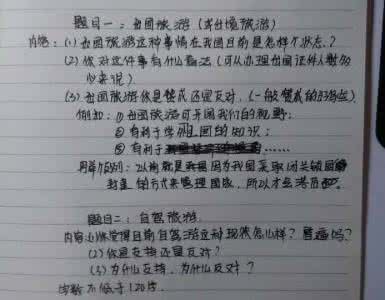 题目一：出国旅游（或出境旅游）
内容：(1) 出国旅游这种事情在我国目前是怎样个状态？
(2) 你对这件事有什么看法（可以办理出国证件人数的
来说）
(3) 出国旅游你是赞成还是反对，（一般赞成的好
例如：① 出国旅游可开阔我们的视野；
② 有利于学 国的知识；
③ 有利于 ……
再举个例：以前就是因为我国采取闭关锁国
封 方式来管理国家，所以才会落后
题目二：自驾旅游
内容：(1) 你觉得目前自驾游这种现状怎么样？普遍吗？
(2) 你是支持还是反对？
(3) 为什么支持，为什么反对？
字数不低于120字。